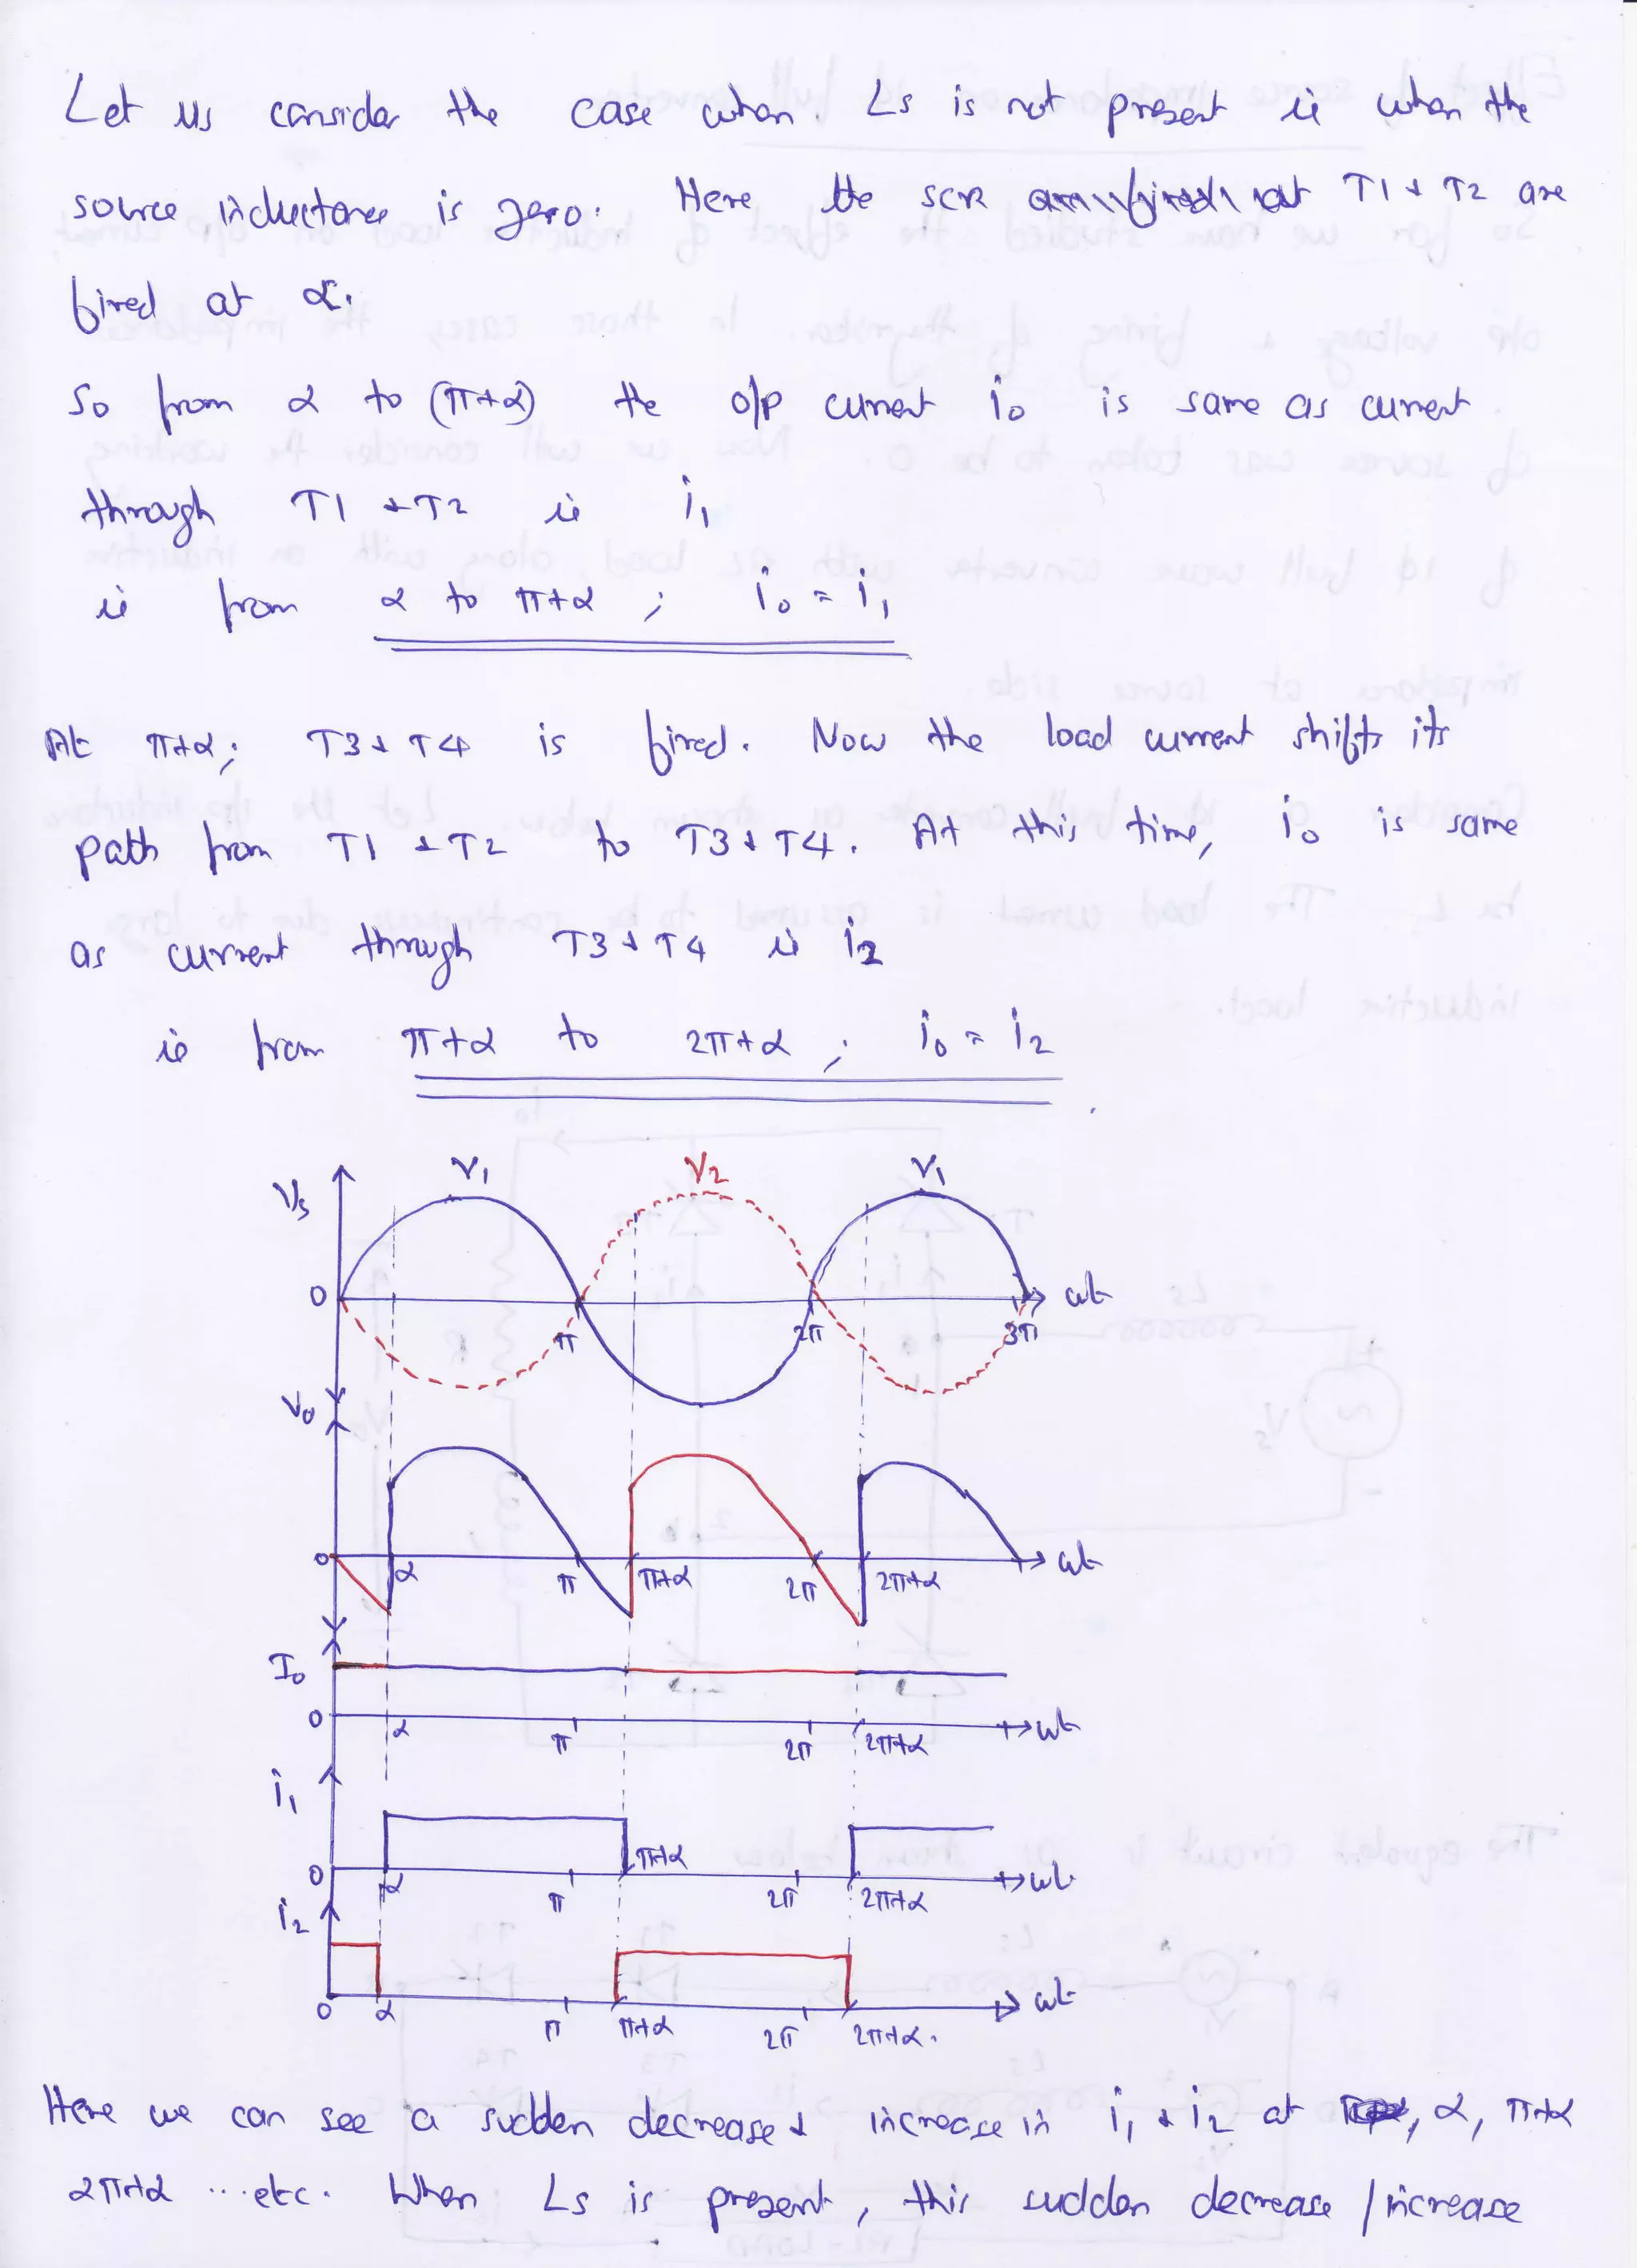 Let us consider the case when Ls is not present ie when the
source inductance is zero. Here the SCR T1 & T2 are
fired at α.
So from α to (π+α) the o/p current i₀ is same as current
through T1 & T2 ie i₁
ie from α to π+α ; i₀ = i₁
At π+α; T3 & T4 is fired. Now the load current shifts its
path from T1 & T2 to T3 & T4. At this time, i₀ is same
as current through T3 & T4 ie i₂
ie from π+α to 2π+α ; i₀ = i₂
V₁ V₂ V₁
Vs
0 π 2π 3π ωt
V₀
0 α π π+α 2π 2π+α ωt
I₀
0 α π 2π 2π+α ωt
i₁
0 α π π+α 2π 2π+α ωt
i₂
0 α π π+α 2π 2π+α. ωt
Here we can see a sudden decrease & increase in i₁ & i₂ at α, π+α
2π+α ...etc. When Ls is present, this sudden decrease / increase